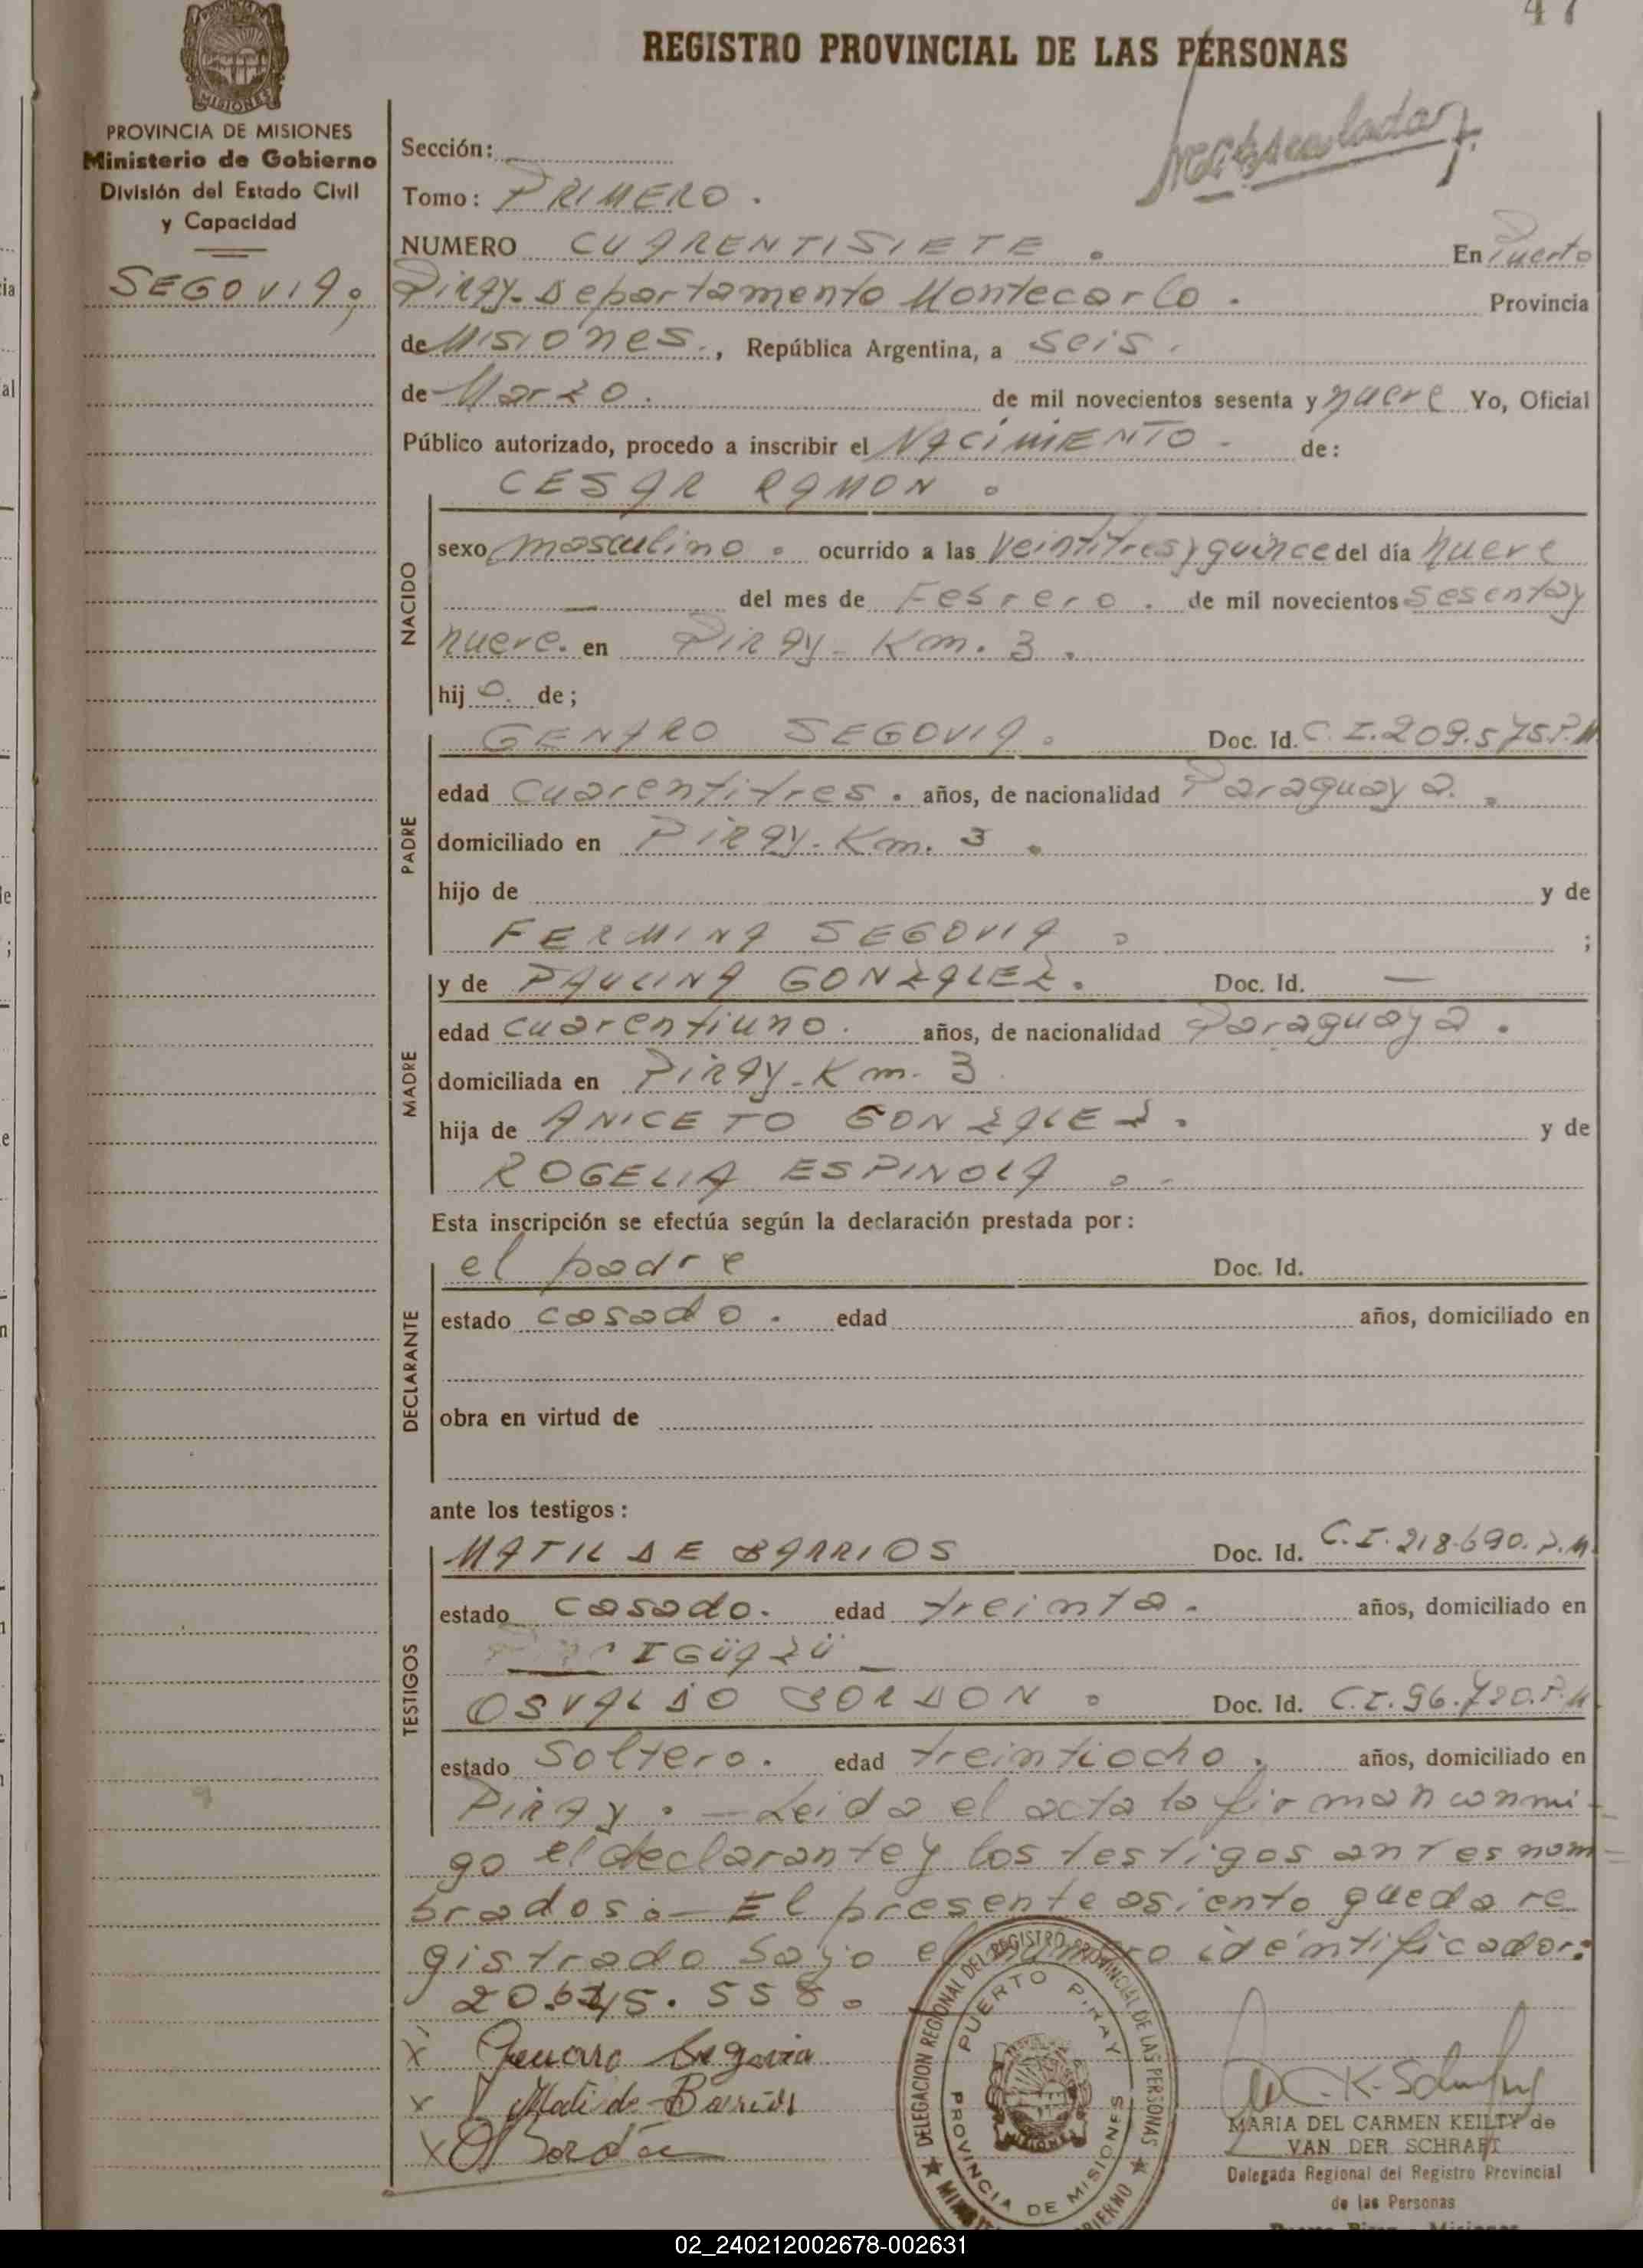 47
REGISTRO PROVINCIAL DE LAS PERSONAS
MISIONES
PROVINCIA DE MISIONES
Ministerio de Gobierno
División del Estado Civil
y Capacidad
SEGOVIA,
Sección:
Tomo: PRIMERO.
NUMERO CUARENTISIETE. En Puerto
Piray-Departamento Montecarlo. Provincia
de Misiones., República Argentina, a seis.
de Marzo. de mil novecientos sesenta y nueve Yo, Oficial
Público autorizado, procedo a inscribir el NACIMIENTO- de:
CESAR RAMON.
NACIDO
sexo masculino. ocurrido a las veintitres y quince del día nueve
— del mes de Febrero. de mil novecientos sesenta y
nueve. en Piray-Km. 3.
hijo. de;
PADRE
GENARO SEGOVIA. Doc. Id. C.I.209.575.P.M
edad cuarentitres. años, de nacionalidad Paraguaya.
domiciliado en Piray-Km. 3.
hijo de y de
FERMINA SEGOVIA. ;
MADRE
y de PAULINA GONZALEZ. Doc. Id. —
edad cuarentiuno. años, de nacionalidad Paraguaya.
domiciliada en Piray-Km. 3
hija de ANICETO GONZALEZ. y de
ROGELIA ESPINOLA.
Esta inscripción se efectúa según la declaración prestada por:
DECLARANTE
el padre Doc. Id.
estado casado. edad años, domiciliado en
obra en virtud de
ante los testigos:
TESTIGOS
MATILDE BARRIOS Doc. Id. C.I.218.690.P.M
estado casado. edad treinta. años, domiciliado en
OSVALDO BORDON. Doc. Id. C.I.96.720.P.M
estado soltero. edad treintiocho. años, domiciliado en
Piray.—Leida el acta la firman conmi-
go el declarante y los testigos antes nom=
brados.—El presente asiento queda re
gistrado bajo el numero identificador:
558.
X Genaro Segovia
X Matilde Barrios
X O Bordón
DELEGACION REGIONAL DEL REGISTRO PROVINCIAL DE LAS PERSONAS
PUERTO PIRAY
PROVINCIA DE MISIONES
MARIA DEL CARMEN KEILTY de
VAN DER SCHRAFT
Delegada Regional del Registro Provincial
de las Personas
02_240212002678-002631